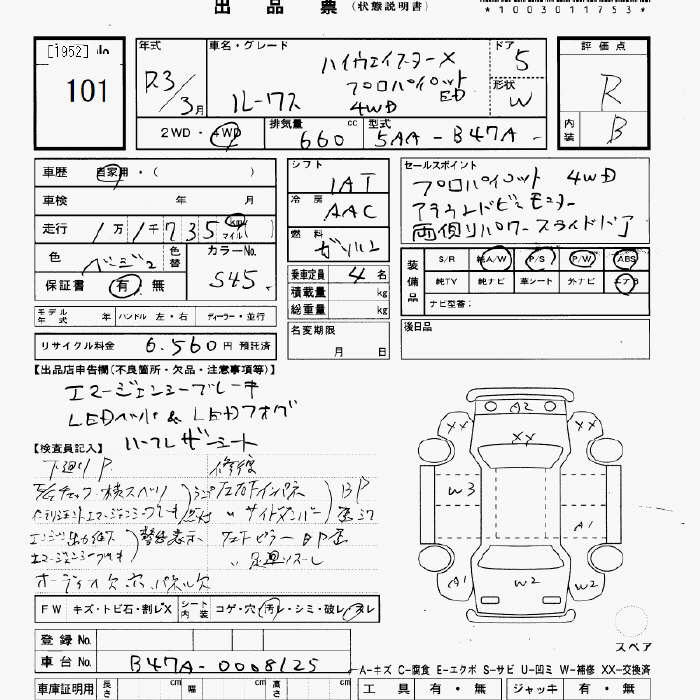 出品票 (状態説明書)
*1003011753*
[1952]
101
年式
R3/3月
車名・グレード
ハイウェイスターX
プロパイロット
ED
ルークス
4WD
ドア
5
形状
W
2WD・4WD
排気量 660 cc
型式 5AA-B47A
評価点
R
内装
B
車歴 自家用・( )
車検 年 月
走行 1万1千735 km マイル ( )
色 ベージュ
色替
カラーNo.
S45
保証書 有・無
シフト
IAT
冷房
AAC
燃料
ガソリン
乗車定員 4名
積載量 kg
総重量 kg
セールスポイント
プロパイロット 4WD
アラウンドビューモニター
両側リパワースライドドア
装備品
S/R 純A/W P/S P/W ABS
純TV 純ナビ 革シート 外ナビ エアB
ナビ型番:
モデル年式 年 ハンドル 左・右 ディーラー・並行
リサイクル料金 6.560円 預託済
名変期限
月 日
後日品
【出品店申告欄(不良箇所・欠品・注意事項等)】
エマージェンシーブレーキ
LEDヘッドランプ & LEDフォグ
ハーフレザーシート
【検査員記入】
下廻りP
修復
エマージェンシーブレーキ
警告表示
オーディオ欠
パネル欠
FW キズ・トビ石・割レX
シート内装 コゲ・穴・汚レ・シミ・破レ・スレ
A2
XX
XX
XX
W3
A1
A1
W2
W2
スペア
登録No.
車台No. B47A-0008125
A-キズ C-腐食 E-エクボ S-サビ U-凹ミ W-補修 XX-交換済
車庫証明用 長さ cm 幅 cm 高さ cm
工具 有・無 ジャッキ 有・無